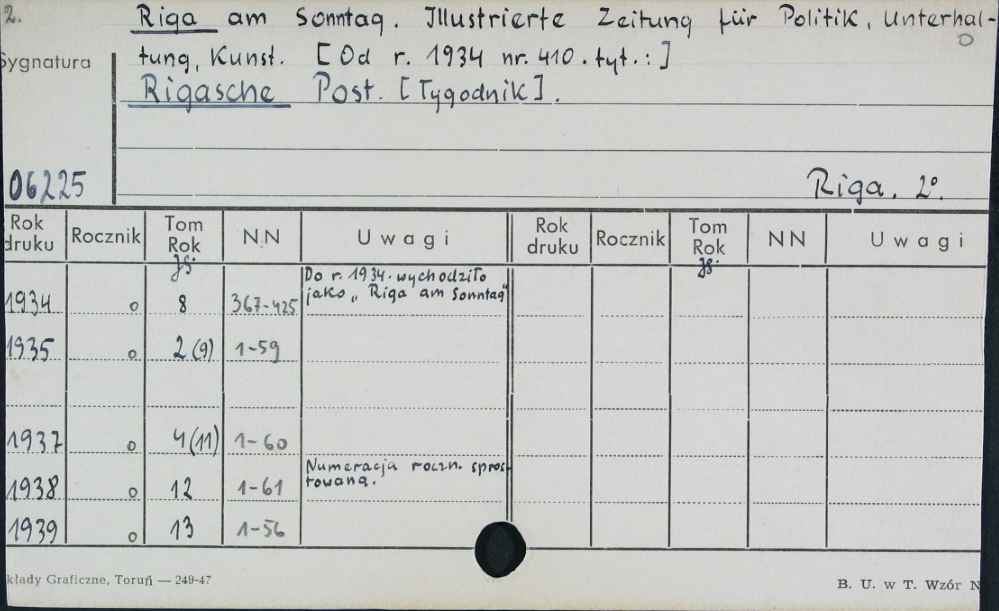 2. Riga am Sonntag. Illustrierte Zeitung für Politik, Unterhal-
Sygnatura tung, Kunst. [Od r. 1934 nr. 410. tyt.:]
Rigasche Post. [Tygodnik].
06225 Riga. 2°.
Rok druku Rocznik Tom Rok Jg. NN Uwagi Rok druku Rocznik Tom Rok Jg. NN Uwagi
Do r. 1934. wychodziło
1934 o 8 367-425 jako „Riga am Sonntag"
1935 o 2 (9) 1-59
1937 o 4 (11) 1-60
Numeracja roczn. spros-
1938 o 12 1-61 towana.
1939 o 13 1-56
kłady Graficzne, Toruń — 249-47 B. U. w T. Wzór N